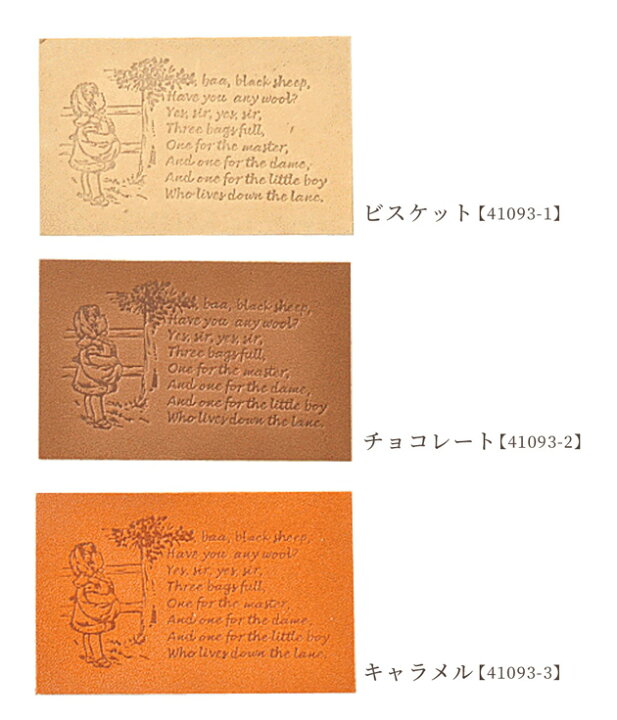 baa, black sheep,
Have you any wool?
Yes, sir, yes, sir,
Three bags full,
One for the master,
And one for the dame,
And one for the little boy
Who lives down the lane.
ビスケット【41093-1】
baa, black sheep,
Have you any wool?
Yes, sir, yes, sir,
Three bags full,
One for the master,
And one for the dame,
And one for the little boy
Who lives down the lane.
チョコレート【41093-2】
baa, black sheep,
Have you any wool?
Yes, sir, yes, sir,
Three bags full,
One for the master,
And one for the dame,
And one for the little boy
Who lives down the lane.
キャラメル【41093-3】